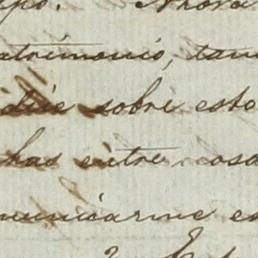 po. Ahora
atrimonio, tan
dije sobre esto
has entre cosa
municarme es